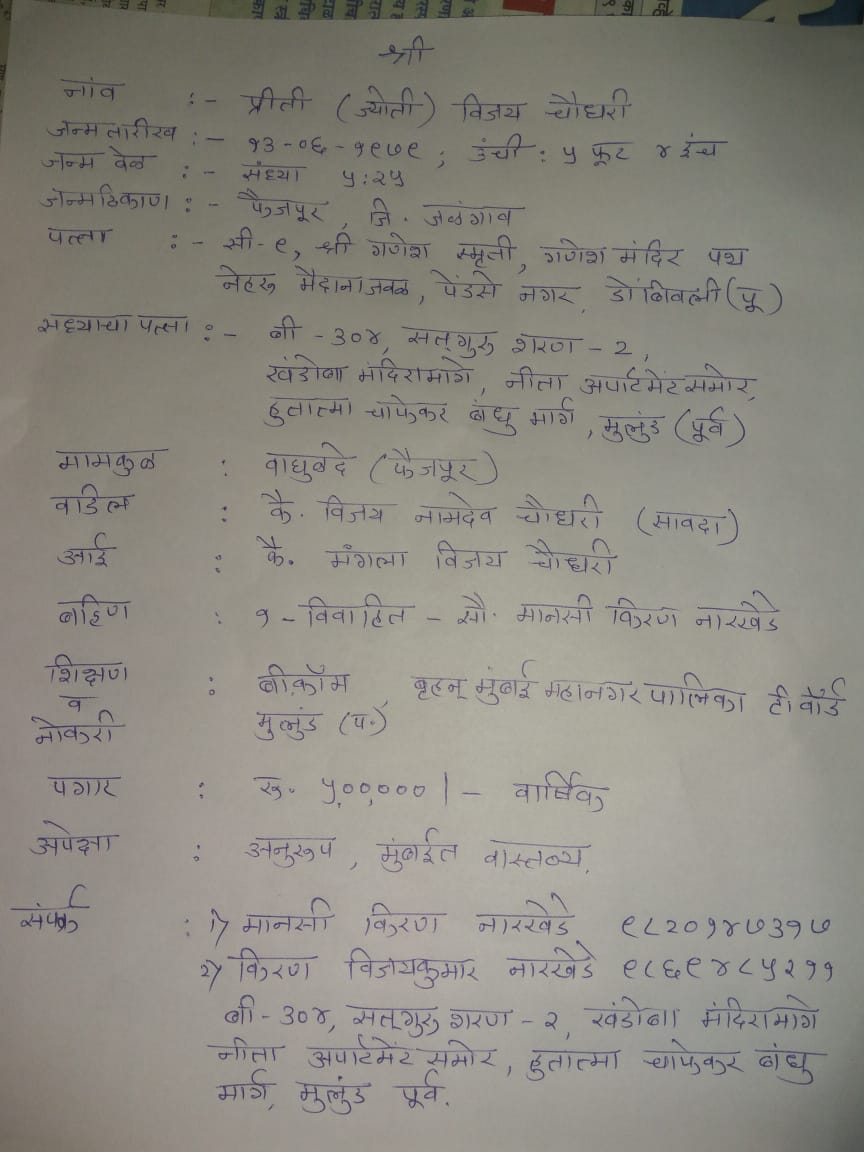 श्री
नांव :- प्रीती (ज्योती) विजय चौधरी
जन्मतारीख :- १३-०६-१९७९ ; उंची : ५ फूट ४ इंच
जन्म वेळ :- संध्या ५:२५
जन्मठिकाण :- फैजपूर, जि. जळंगाव
पत्ता :- सी-९, श्री गणेश स्मृती, गणेश मंदिर पथ
नेहरु मैदानाजवळ, पेंडसे नगर, डोंबिवली (पू)
सध्याचा पत्ता :- बी - ३०४, सत्गुरु शरण - 2,
खंडोबा मंदिरामागे, नीता अपार्टमेंटसमोर,
हुतात्मा चाफेकर बंधु मार्ग, मुलुंड (पूर्व)
मामकुळ : वाघुळदे (फैजपूर)
वडिल : कै. विजय नामदेव चौधरी (सावदा)
आई : कै. मंगला विजय चौधरी
बहिण : १ - विवाहित - सौ. मानसी किरण नारखेडे
शिक्षण व नोकरी : बी.कॉम, बृहन् मुंबई महानगरपालिका टी वॉर्ड
मुलुंड (प.)
पगार : रु. ५,००,००० /- वार्षिक
अपेक्षा : अनुरुप, मुंबईत वास्तव्य.
संपर्क : १) मानसी किरण नारखेडे ९८२०१४७३१७
२) किरण विजयकुमार नारखेडे ९८६९४८५२११
बी - ३०४, सत्गुरु शरण - २, खंडोबा मंदिरामागे
नीता अपार्टमेंट समोर, हुतात्मा चाफेकर बंधु
मार्ग, मुलुंड पूर्व.